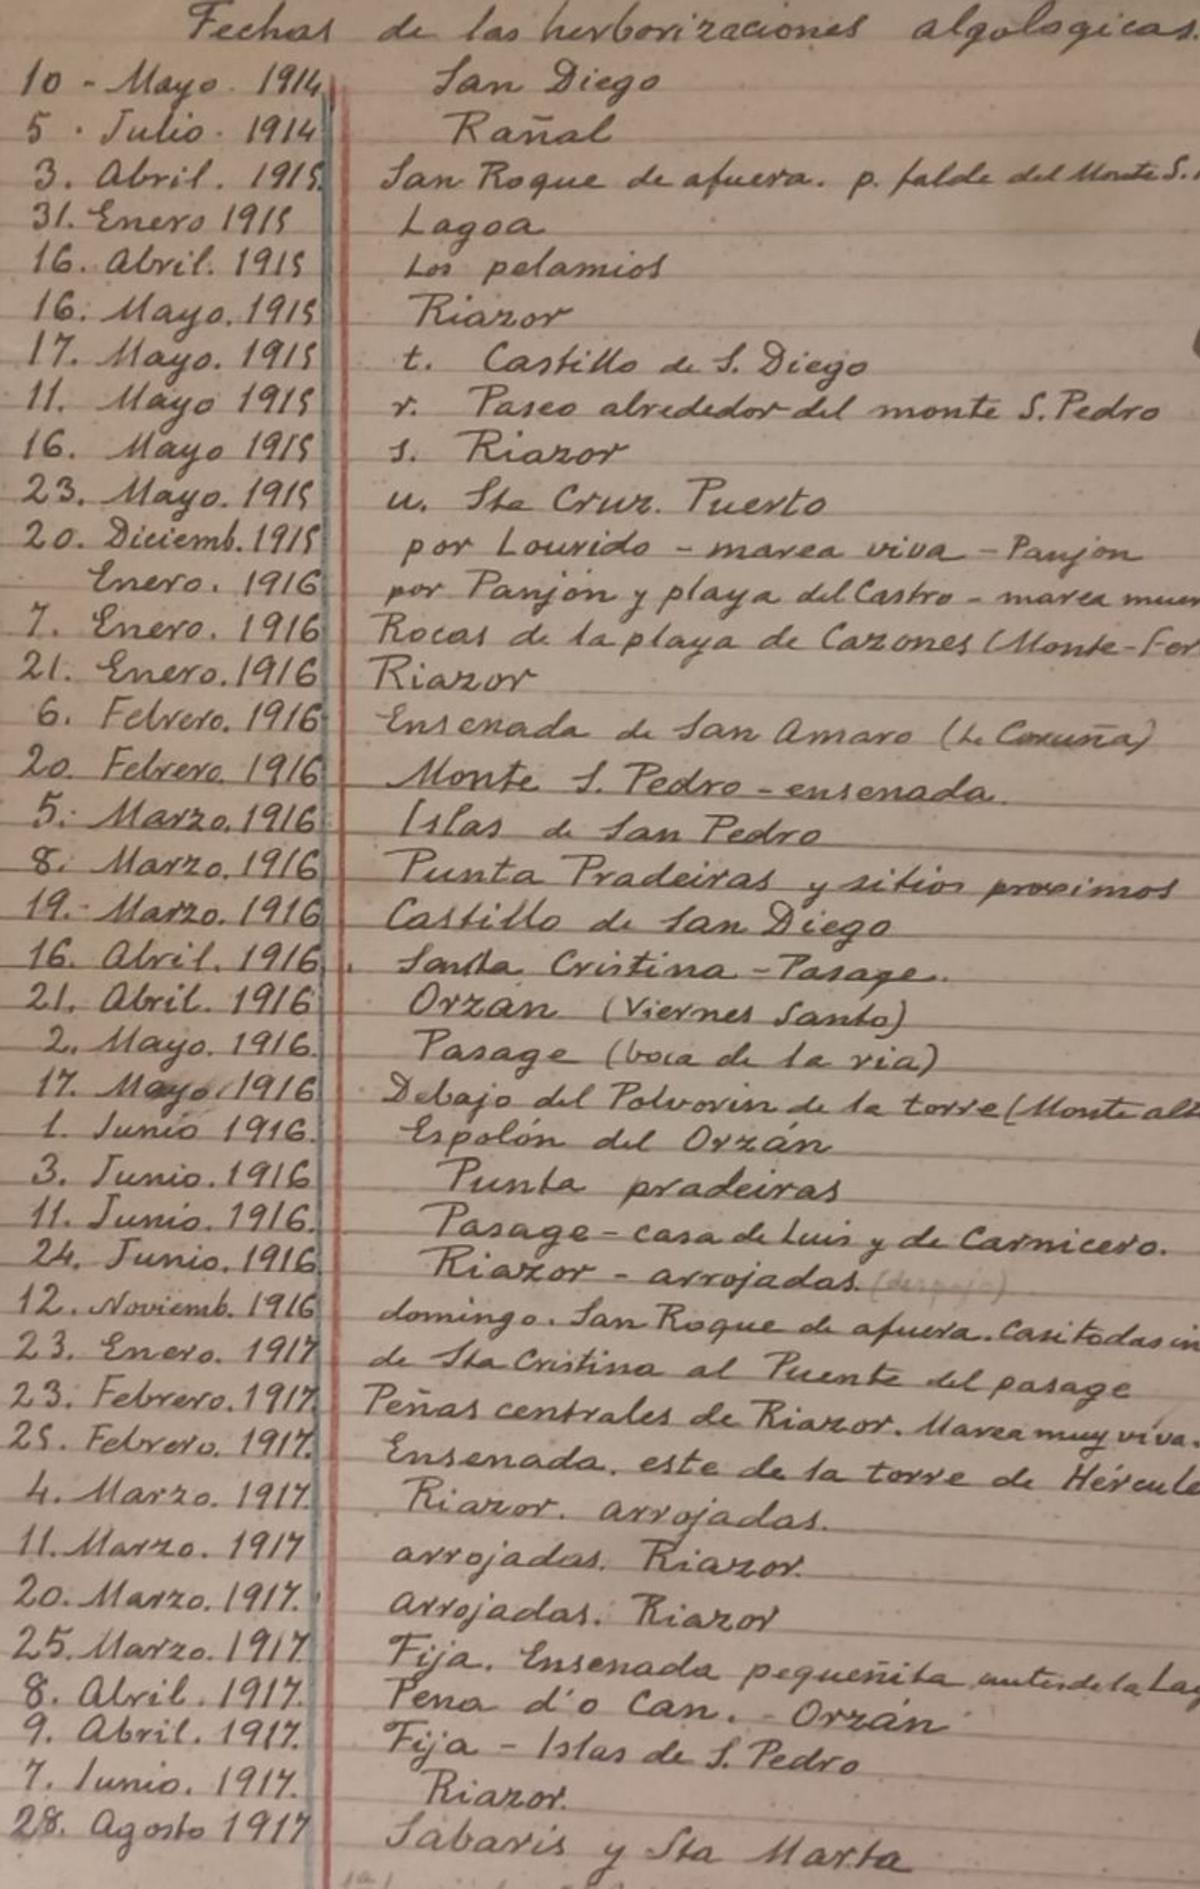 Fechas de las herborizaciones algologicas.
10 - Mayo. 1914 San Diego
5 · Julio · 1914 Rañal
3. Abril. 1915 San Roque de afuera. p. falde del Monte S.
31. Enero 1915 Lagoa
16. Abril. 1915 Los pelamios
16. Mayo. 1915 Riazor
17. Mayo. 1915 t. Castillo de S. Diego
11. Mayo 1915 r. Paseo alrededor del monte S. Pedro
16. Mayo 1915 s. Riazor
23. Mayo. 1915 u. Sta Cruz. Puerto
20. Diciemb. 1915 por Lourido - marea viva - Panjon
Enero. 1916 por Panjón y playa del Castro - marea muer
7. Enero. 1916 Rocas de la playa de Cazones (Monte-Fer
21. Enero. 1916 Riazor
6. Febrero. 1916 Ensenada de San Amaro (La Coruña)
20. Febrero. 1916 Monte S. Pedro - ensenada.
5. Marzo. 1916 Islas de San Pedro
8. Marzo. 1916 Punta Pradeiras y sitios proximos
19. Marzo. 1916 Castillo de San Diego
16. Abril. 1916. Santa Cristina - Pasage.
21. Abril. 1916 Orzán (Viernes Santo)
2. Mayo. 1916. Pasage (boca de la ria)
17. Mayo 1916 Debajo del Polvorin de la torre (Monte alt
1. Junio 1916. Espolón del Orzán
3. Junio. 1916 Punta pradeiras
11. Junio. 1916. Pasage - casa de Luis y de Carnicero.
24. Junio. 1916. Riazor - arrojadas. (despojo)
12. Noviemb. 1916 domingo. San Roque de afuera. Casi todas in
23. Enero. 1917 de Sta Cristina al Puente del pasage
23. Febrero. 1917. Peñas centrales de Riazor. Marea muy viva.
25. Febrero. 1917. Ensenada. este de la torre de Hércule
4. Marzo. 1917. Riazor. arrojadas.
11. Marzo. 1917 arrojadas. Riazor.
20. Marzo. 1917. arrojadas. Riazor
25. Marzo. 1917. Fija. Ensenada pequeñita antes de la Lag
8. Abril. 1917. Pena d'o Can. - Orzán
9. Abril. 1917. Fija - Islas de S. Pedro
7. Junio. 1917. Riazor.
28. Agosto 1917 Sabaris y Sta Marta